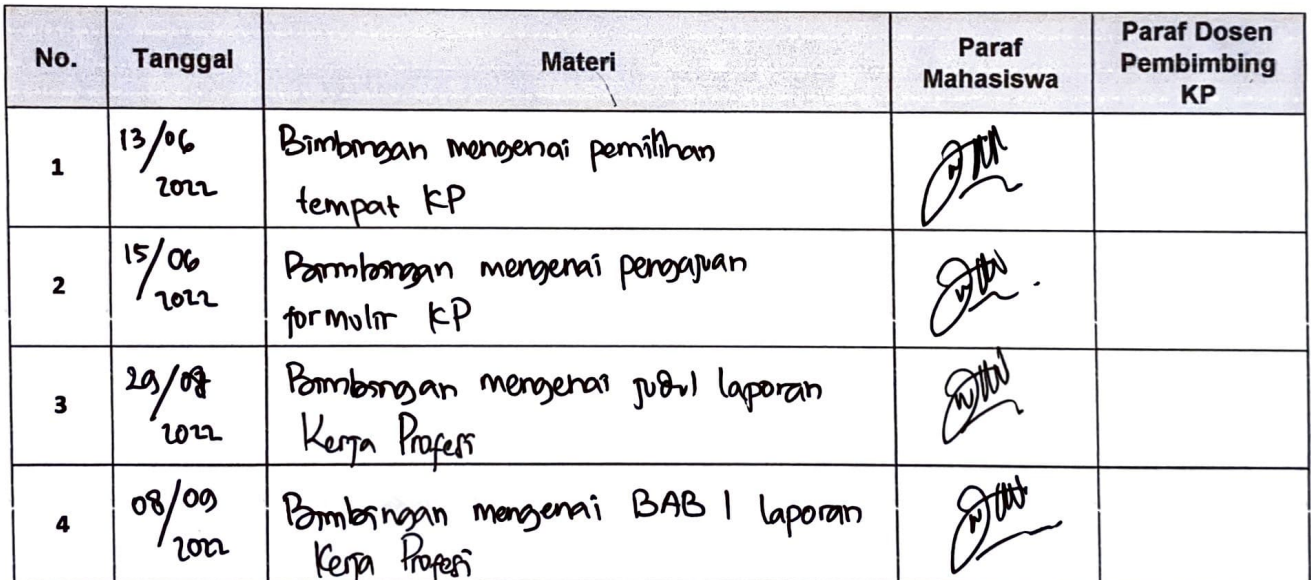 No. Tanggal Materi Paraf Mahasiswa Paraf Dosen Pembimbing KP
1 13/06 2022 Bimbingan mengenai pemilihan
tempat KP
2 15/06 2022 Bimbingan mengenai pengajuan
formulir KP
3 29/08 2022 Bimbingan mengenai judul laporan
Kerja Profesi
4 08/09 2022 Bimbingan mengenai BAB 1 laporan
Kerja Profesi